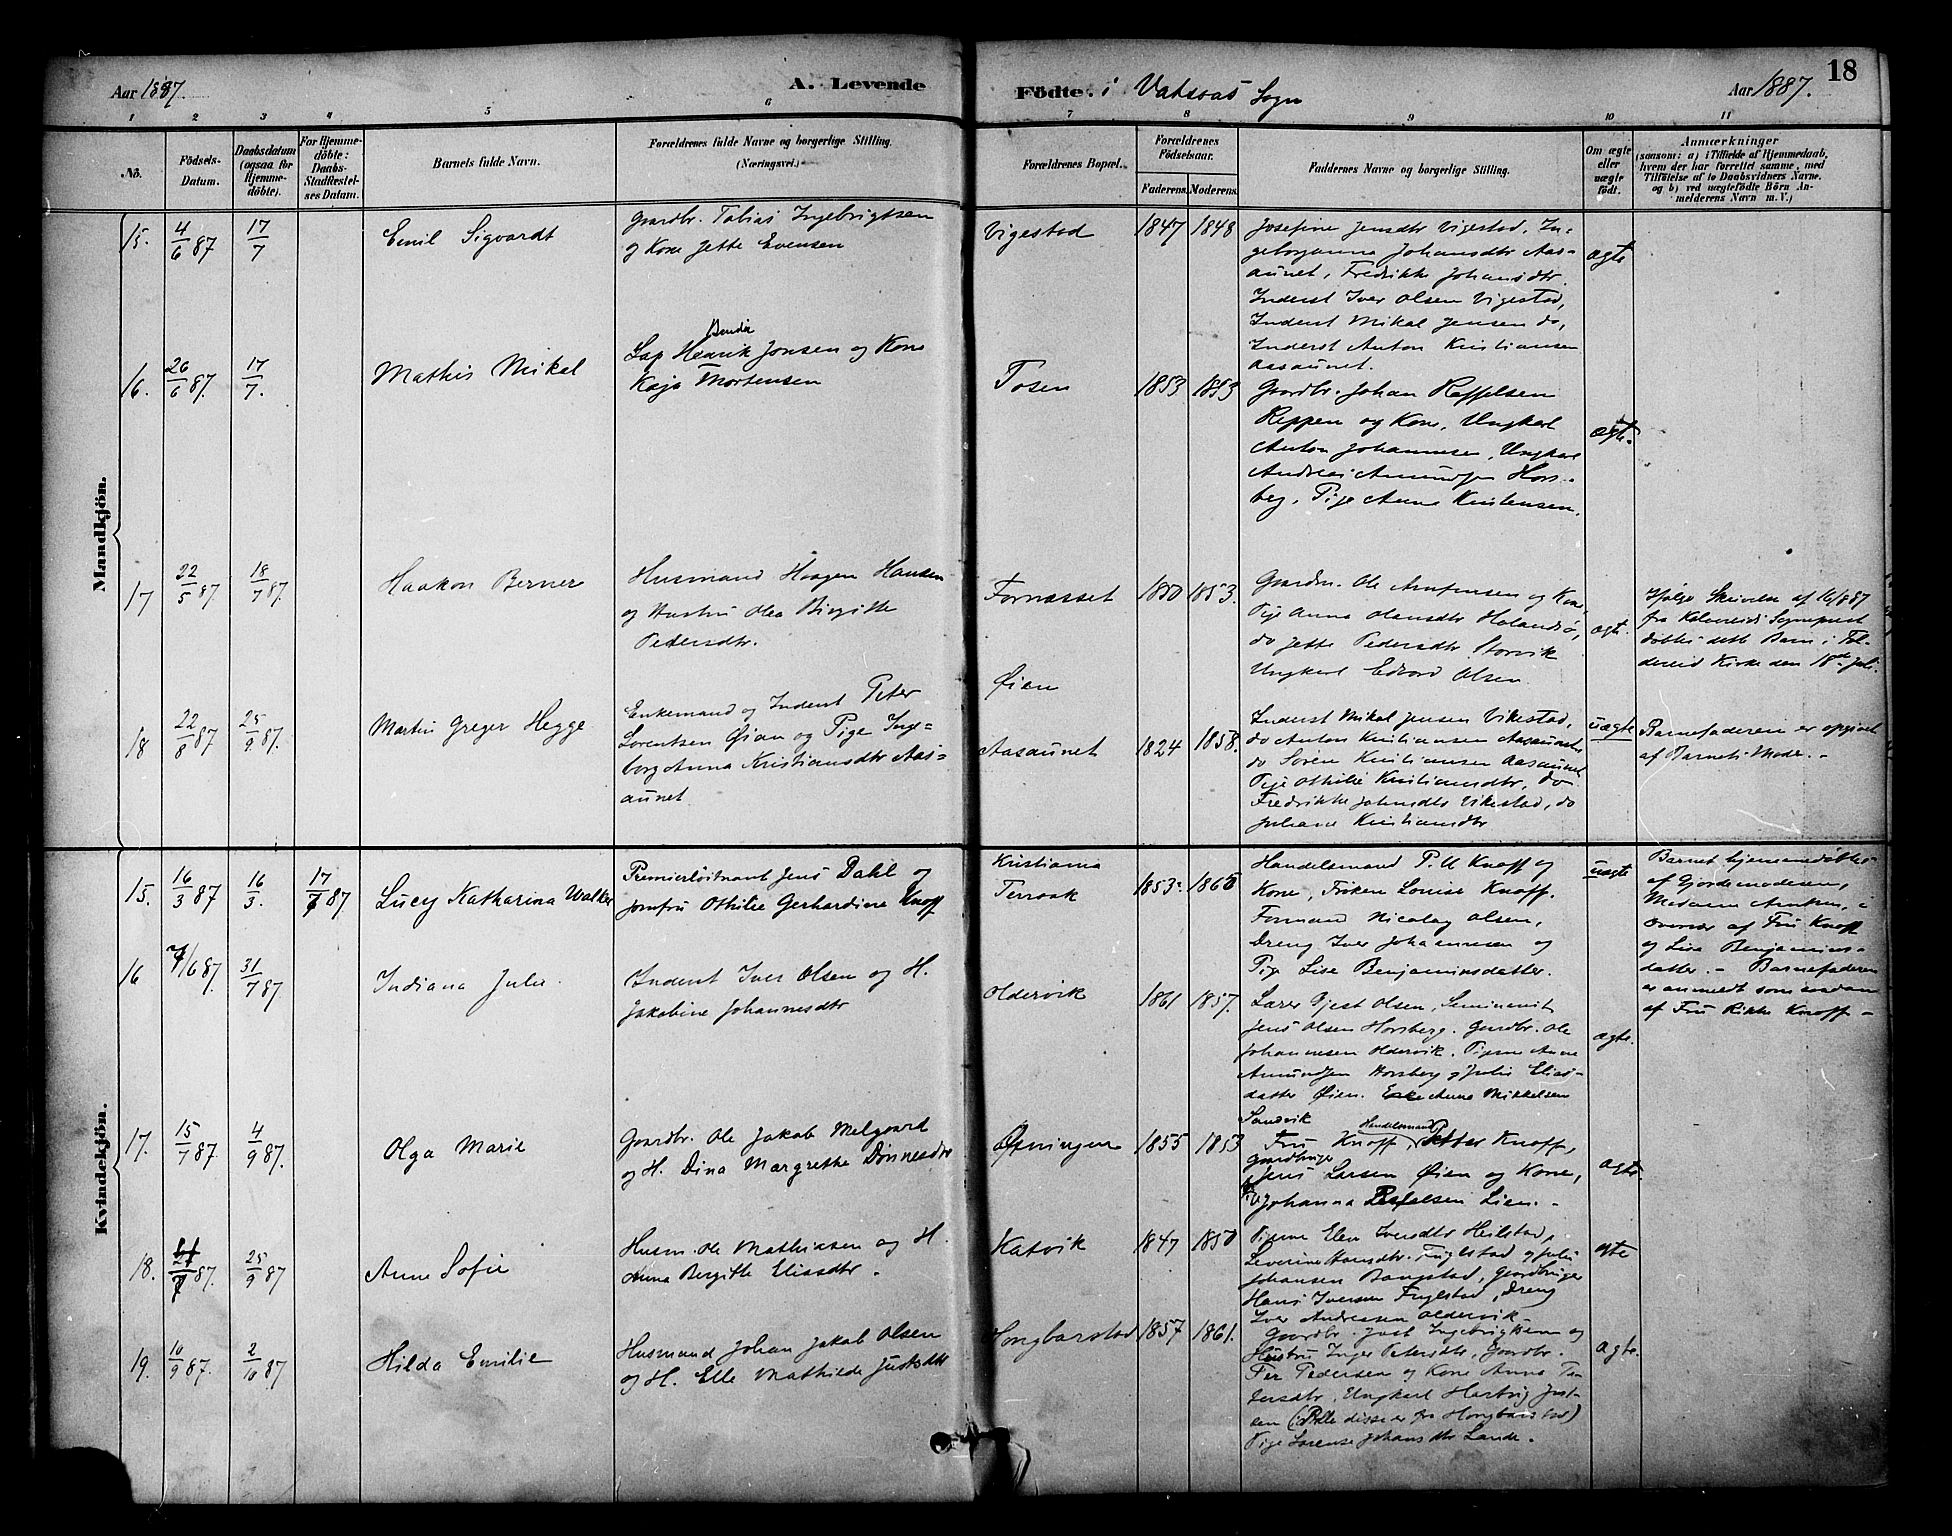 Aar 1887.
A. Levende
Födte i Vatsaas Sogn
Aar 1887.
18
1 2 3 4 5 6 7 8 9 10 11
No.
Födsels-Datum.
Daabsdatum (ogsaa for Hjemmedöbte).
For Hjemmedöbte: Daabs-Stadfæstelses Datum.
Barnets fulde Navn.
Forældrenes fulde Navne og borgerlige Stilling. (Næringsvei.)
Forældrenes Bopæl.
Forældrenes Födselsaar.
Faderens. Moderens.
Faddernes Navne og borgerlige Stilling.
Om ægte eller uægte födt.
Anmærkninger
(saasom: a) i Tilfælde af Hjemmedaab, hvem der har forrettet samme, med Tilföielse af to Daabsvidners Navne. og b) ved uægtefödte Börn Anmelderens Navn m. V.)
Mandkjön.
15. 4/6 87 17/7 Emil Sigvardt
Gaardbr. Tobias Ingebrigtsen
og Kone Jette Evensen
Vigestad 1847 1848
Josefine Jensdtr Vigestad, In-
geborganna Johansdtr Aas-
aunet, Fredrikke Johansdtr
Inderst Iver Olsen Vigestad,
Inderst Mikal Jensen do,
Inderst Anton Kristiansen
Aasaunet.
ægte
16. 26/6 87. 17/7. Mathis Mikal
Lap Henrik Jonsen og Kone
Kaja Mortensen
Tosen 1853 1853
Gaardbr. Johan Raffelsen
Reppen og Kone, Ungkarl
Anton Johannesen, Ungkarl
Andreas Amundsen Hors-
berg, Pige Anne Kristensen.
ægte.
17 22/5 87. 18/7 87. Haakon Berner
Husmand Haagen Hansen
og Hustru Olea Birgitte
Pedersdtr.
Fornæsset 1850 1853.
Gaardm. Ole Arntsensen og Kone,
Pige Anna Olausdtr Holandsø,
do Jette Pedersdtr Storvik
Ungkarl Edvard Olsen
ægte.
Ifølge Skrivelse af 16/8 87
fra Kolvereids Sognepræst
døbtes dette Barn i Fol-
dereid Kirke den 18de Juli.
18 22/8 87 25/9 87. Martin Greger Hegge
Enkemand og Inderst Peter
Lorentsen Øien og Pige Inge-
borg Anna Kristiansdtr Aas-
aunet
Øien
Aasaunet 1824 1858.
Inderst Mikal Jensen Vikestad,
do Anton Kristiansen Aasaunet
do Søren Kristiansen Aasaunet
Pige Othilie Kristiansdtr, do
Fredrikke Johansdtr Vikestad, do
Juliane Kristiansdtr
uægte
Barnefaderen er opgivet
af Barnets Moder.-
Kvindekjön.
15. 16/3 87 16/3. 17/7 87 Lucy Katharina Walker
Premierløitnant Jens Dahl og
Jomfru Othilie Gerhardine Knoff
Kristiania
Terraak 1853. 1865
Handelsmand P. U Knoff og
Kone, Frøken Louise Knoff.
Formand Nicolay Olsen,
Dreng Iver Johannesen og
Pige Lise Benjaminsdatter.
uægte
Barnet hjemmedøbtes
af Gjordemoderen,
Madame Arntsen, i
Overvær af Fru Knoff
og Lise Benjamins-
datter. - Barnefaderen
er anmeldt som saadan
af Fru Rikke Knoff -
16 7/6 87. 31/7 87 Indiana Julie.
Inderst Iver Olsen og H.
Jakobine Johannesdtr
Oldervik 1861 1857.
Lærer Gjest Olsen, Seminarist
Jens Olsen Horsberg. Gaardbr. Ole
Johannesen Oldervik. Pigerne Anne
Amundsen Horsberg og Julie Elias-
datter Øien. Enke Anne Mikkelsen
Sandvik
ægte.
17. 15/7 87 4/9 87. Olga Marie
Gaardbr. Ole Jakob Melgaard
og H. Dina Margrethe Dønnesdtr
Øpningen 1855 1853
Fru Knoff, Handelsmand Petter Knoff,
Gaardbruger
Jens Larsen Øien og Kone,
Johanna Rafaelsen Lien.-
ægte.
18. 21/7 87. 25/9 87 Anne Sofie
Husm. Ole Mathiasen og H.
Anna Bergitte Eliasdtr.
Katvik 1847 1850
Pigerne Elen Iversdtr Heilstad,
Leverine Hansdtr. Fuglstad og Julie
Johansen Bangstad, Gaardbruger
Hans Iversen Fuglstad, Dreng
Iver Andreassen Oldervik
ægte
19. 10/9 87. 2/10 87 Hilda Emilie
Husmand Johan Jakob Olsen
og H. Elle Mathilde Justsdtr
Hongbarstad 1857 1861.
Gaardbr. Just Ingebrigtsen og
Hustru Inger Petersdtr, Gaardbr.
Per Pedersen og Kone Anna Pe-
dersdtr, Ungkarl Hartvig Just-
sen (Alle disse er fra Hongbarstad)
Pige Lorense Johansdtr Lande.
ægte.